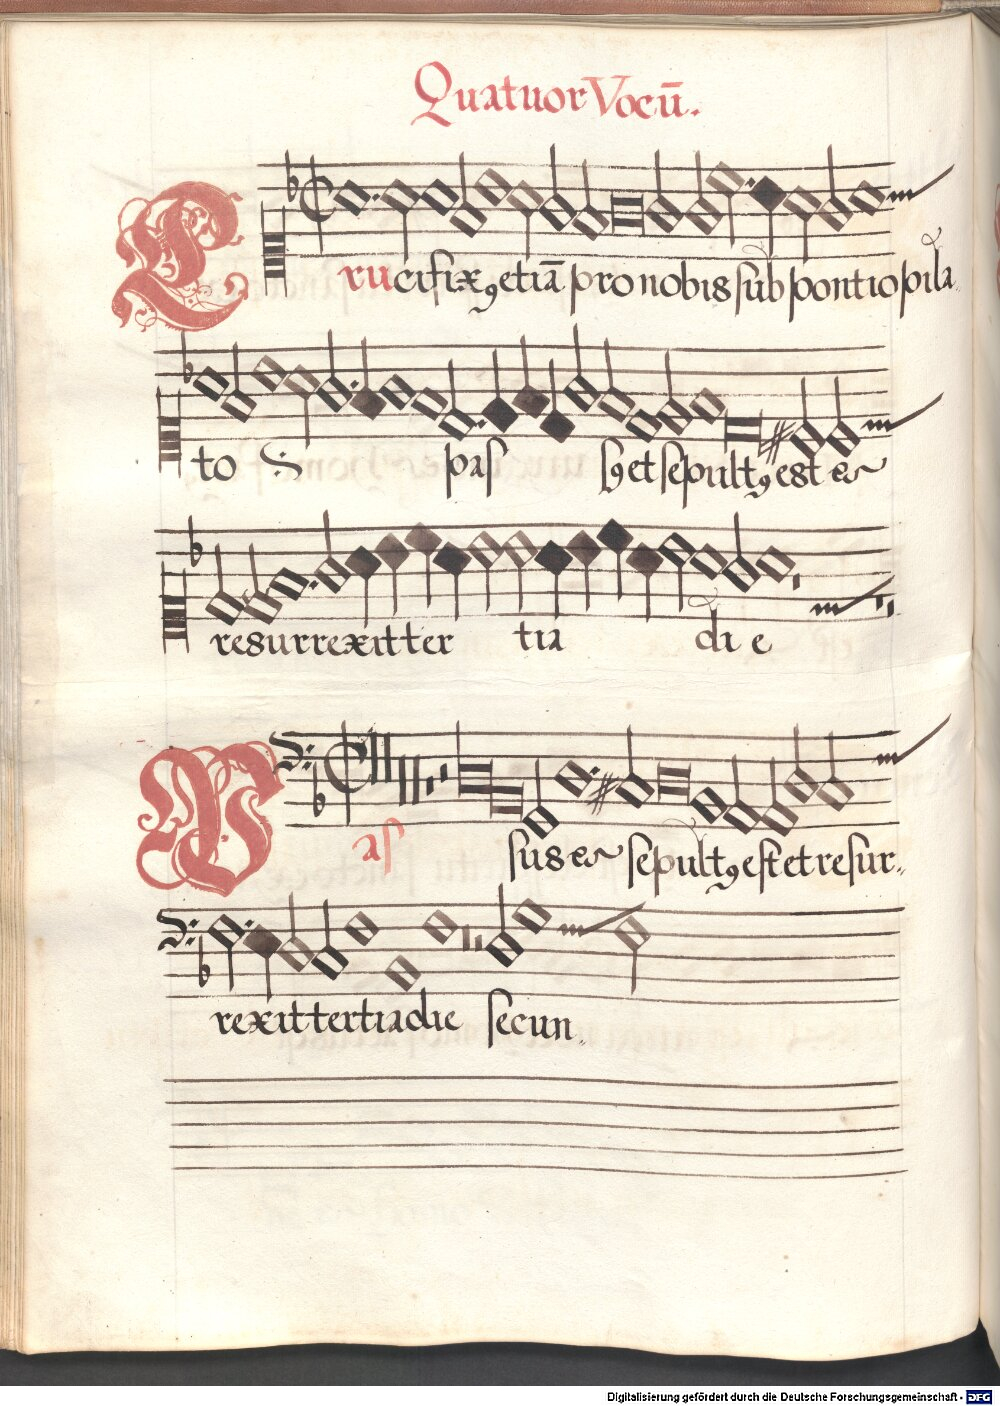 Quatuor Vocū.
Crucifixꝯ etiā pro nobis sub pontio pila
to pasſ ꝯ et sepultꝯ est
resurrexit tertia die
Pasſus sepultꝯ est et resur-
rexit tertia die secun-
Digitalisierung gefördert durch die Deutsche Forschungsgemeinschaft - DFG